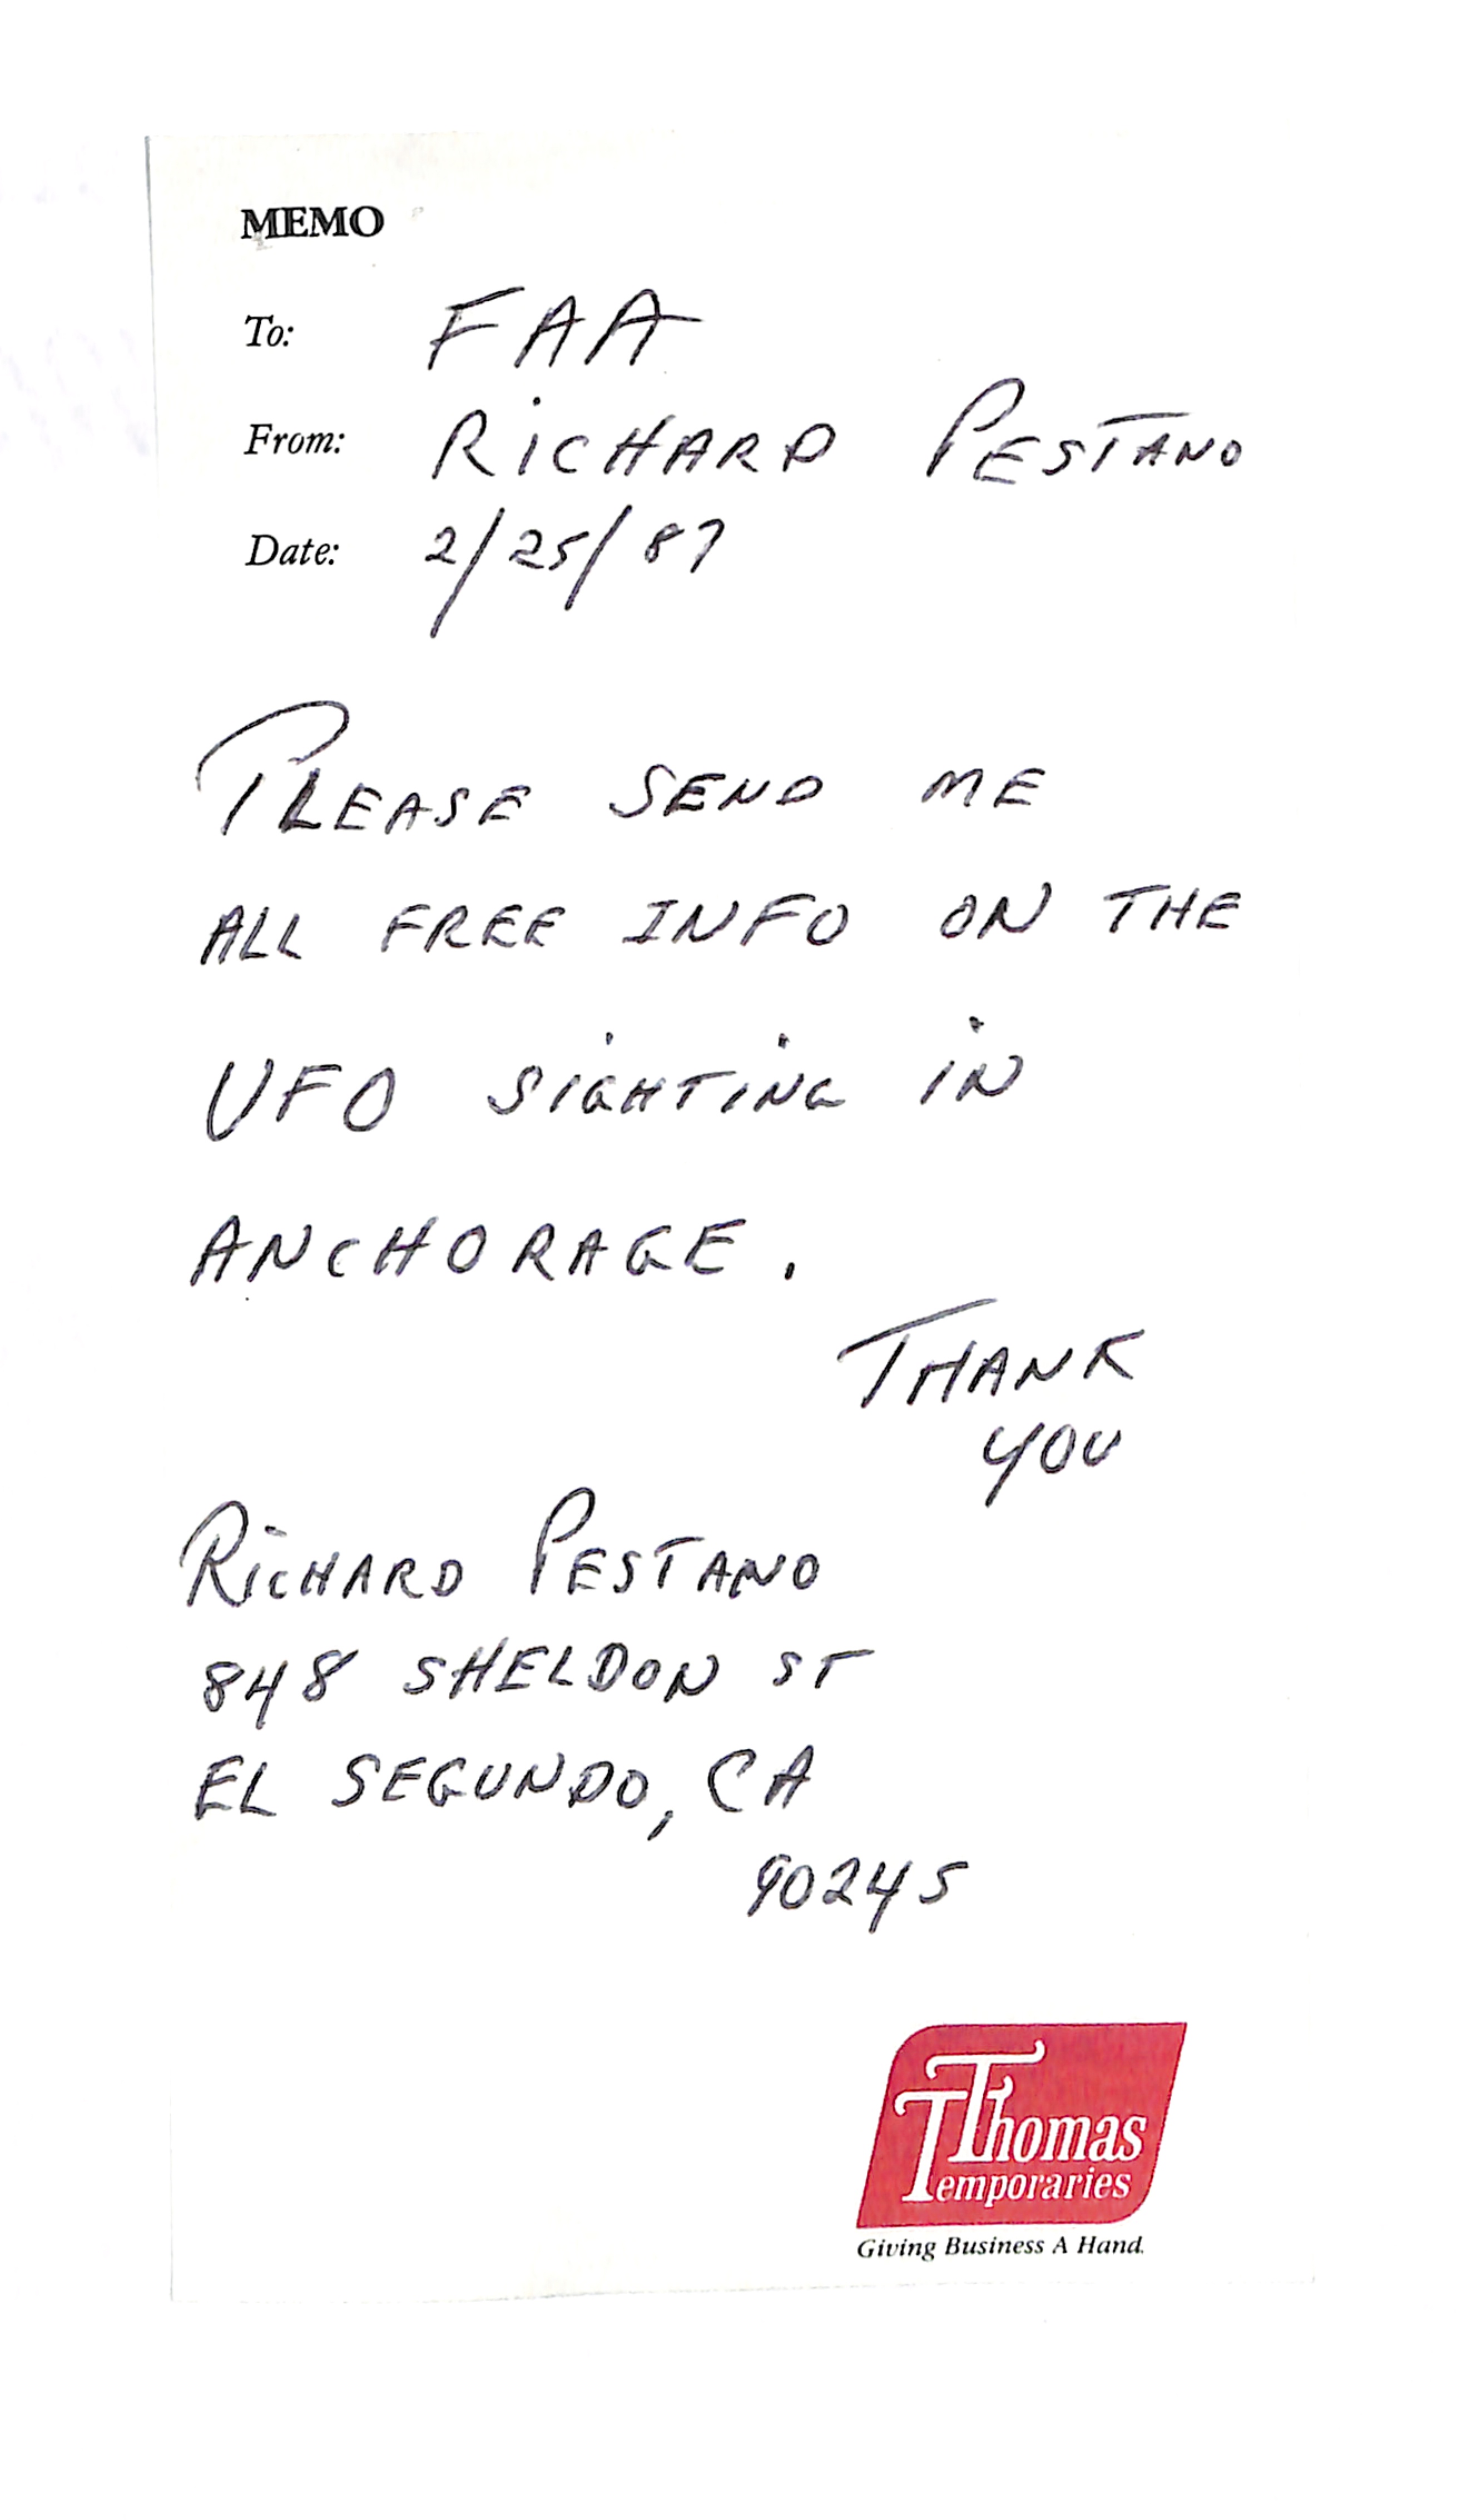 MEMO
To: FAA
From: RiCHARD PESTANO
Date: 2/25/87
PLEASE SEND ME
ALL FREE INFO ON THE
UFO SiGHTiNG iN
ANCHORAGE.
THANK
YOU
RiCHARD PESTANO
848 SHELDON ST
EL SEGUNDO, CA
90245
Thomas
Temporaries
Giving Business A Hand.